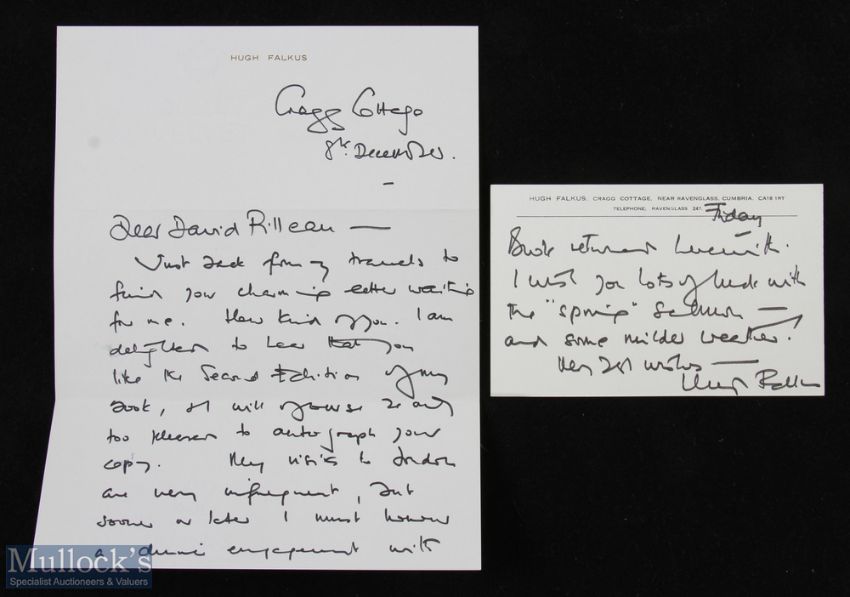 HUGH FALKUS
Cragg Cottage
8th December.
Dear David Rilleau —
Just back from my travels to
find your charming letter waiting
for me. How kind of you. I am
delighted to hear that you
like the Second Edition of my
book, I will of course be only
too pleased to autograph your
copy. My visits to London
are very infrequent, but
sooner or later I must honour
a dinner engagement with
HUGH FALKUS, CRAGG COTTAGE, NEAR RAVENGLASS, CUMBRIA, CA18 1RT
TELEPHONE, RAVENGLASS 247
Friday
Book returned herewith.
I wish you lots of luck with
the "spring" salmon —
and some milder weather!
Very best wishes —
Hugh Falkus
Mullock's
Specialist Auctioneers & Valuers